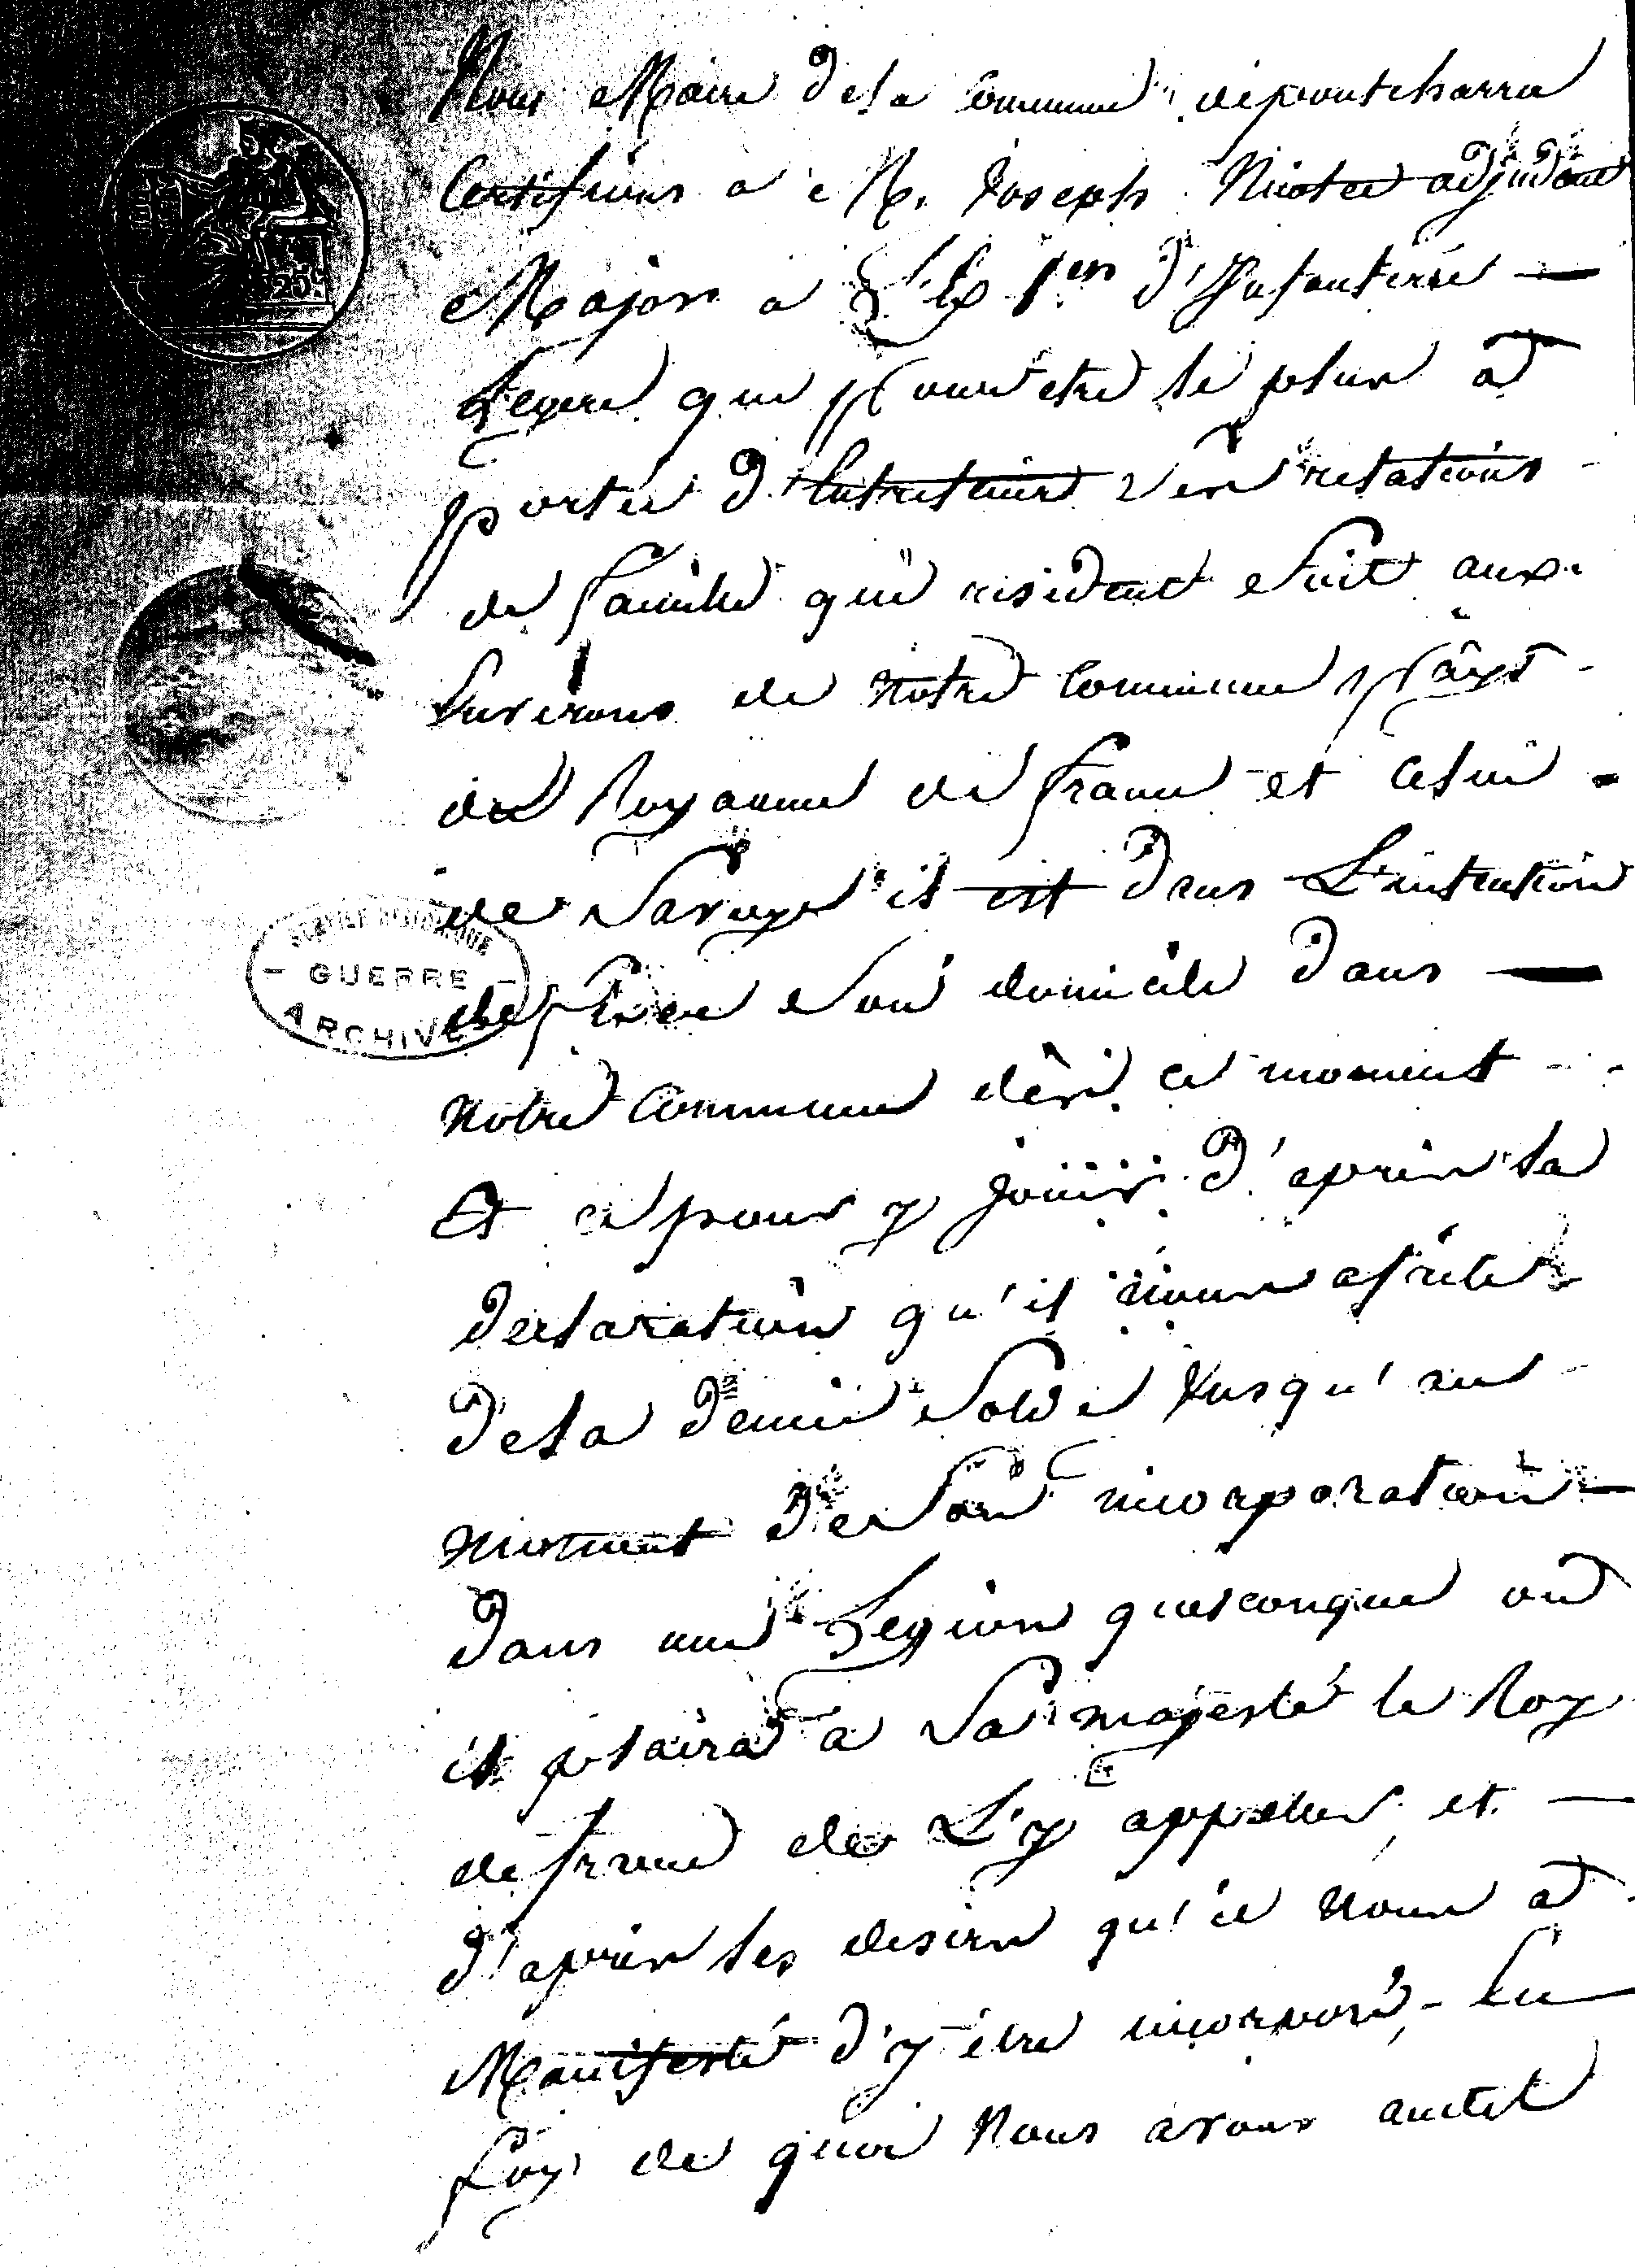 Nous Maire dela Commune depontcharra
Certifions a Mr. Joseph Nicolet adjudant
Major a L'Ex 1er d'Infanterie —
Legere que pour être le plus à
portée d'Entretenir ses relations
de famille qui resident soit aux
Environs de notre Commune pays
du Royaume de france et celui
de Savoye il est dans L'intention
de fixer son domicile dans —
notre Commune dès ce moment
Et ce pour y jouir d'après la
declaration qu'il nous a faite
dela demie Solde Jusqu'au
moment de son incorporation —
dans une Legion quelconque où
il plaira a Sa majesté le Roy
de france de L'y appeller, et —
d'après les desirs qu'il nous a
Manifesté d'y être incorporé, - En
foy de quoi Nous avons
20 c.
GUERRE
ARCHIVES